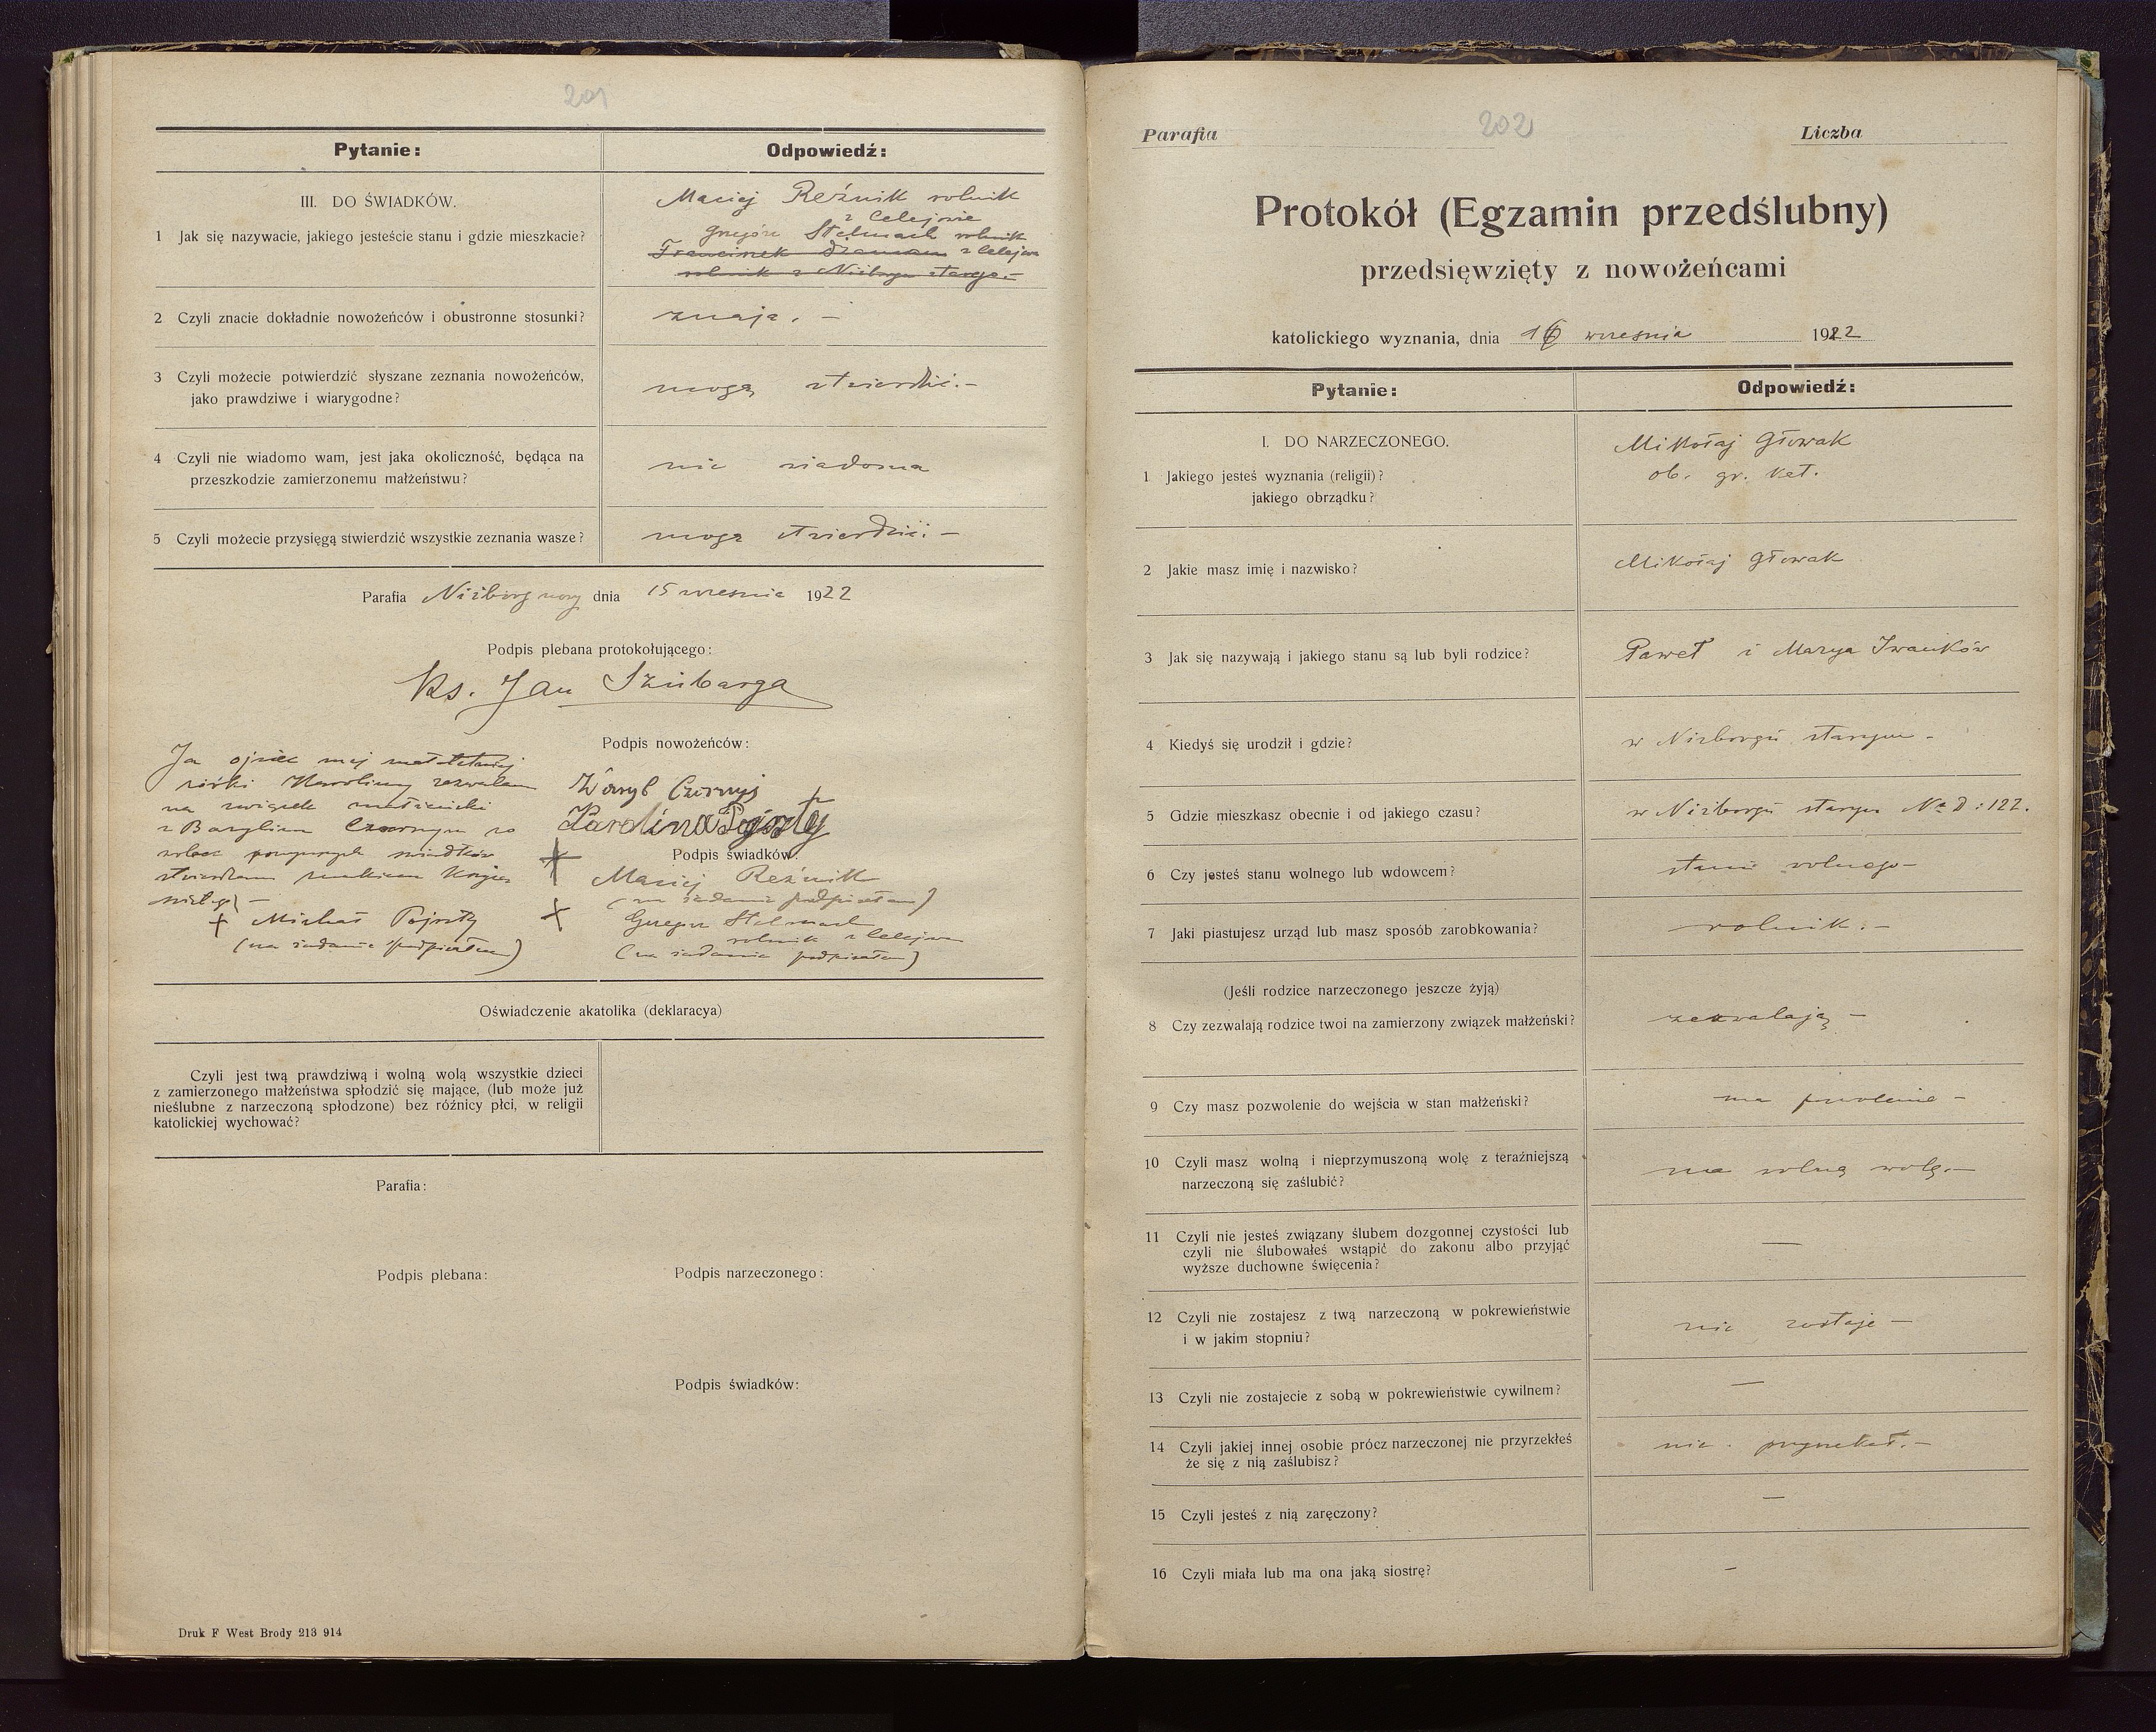 201
Pytanie:
Odpowiedź:
III. DO ŚWIADKÓW.
1 Jak się nazywacie, jakiego jesteście stanu i gdzie mieszkacie?
Maciej Reźnik rolnik
z Celejowie
Grzegórz Stelmach rolnik
z Celejowa
Franciszek
rolnik z Niżborgu starego.—
2 Czyli znacie dokładnie nowożeńców i obustronne stosunki?
znają. —
3 Czyli możecie potwierdzić słyszane zeznania nowożeńców,
jako prawdziwe i wiarygodne?
mogą stwierdzić.—
4 Czyli nie wiadomo wam, jest jaka okoliczność, będąca na
przeszkodzie zamierzonemu małżeństwu?
nie wiadoma
5 Czyli możecie przysięgą stwierdzić wszystkie zeznania wasze?
mogą stwierdzić. —
Parafia Niżborg nowy dnia 15 wresnia 1922
Podpis plebana protokołującego:
Ks. Jan Szubarga
Podpis nowożeńców:
Ja ojciec mej małoletniej
córki Karoliny zezwalam
na związek małżeński
z Bazylim Czornym co
wobec powyższych świadków
stwierdzam znakiem Krzyża
+ Michał Pojzły
(na żądanie podpisałem)
Wasyl Czornyj
Karolina Pojzły
Podpis świadków:
+ Maciej Reźnik
(na żądanie podpisałem)
+ Grzegorz Stelmach
rolnik z Celejowa
(na żądanie podpisałem)
Oświadczenie akatolika (deklaracya)
Czyli jest twą prawdziwą i wolną wolą wszystkie dzieci
z zamierzonego małżeństwa spłodzić się mające, (lub może już
nieślubne z narzeczoną spłodzone) bez różnicy płci, w religii
katolickiej wychować?
Parafia:
Podpis plebana:
Podpis narzeczonego:
Podpis świadków:
Druk F West Brody 213 914
Parafia
202
Liczba
Protokół (Egzamin przedślubny)
przedsięwzięty z nowożeńcami
katolickiego wyznania, dnia 16 wresnia 1922
Pytanie:
Odpowiedź:
I. DO NARZECZONEGO.
1 Jakiego jesteś wyznania (religii)?
jakiego obrządku?
Mikołaj Głowak
ob. gr. kat.
2 Jakie masz imię i nazwisko?
Mikołaj Głowak
3 Jak się nazywają i jakiego stanu są lub byli rodzice?
Paweł i Marya Iwanków
4 Kiedyś się urodził i gdzie?
w Niżborgu starym —
5 Gdzie mieszkasz obecnie i od jakiego czasu?
w Niżborgu starym Nr D: 122.
6 Czy jesteś stanu wolnego lub wdowcem?
stanu wolnego —
7 Jaki piastujesz urząd lub masz sposób zarobkowania?
rolnik. —
(Jeśli rodzice narzeczonego jeszcze żyją)
8 Czy zezwalają rodzice twoi na zamierzony związek małżeński?
zezwalają —
9 Czy masz pozwolenie do wejścia w stan małżeński?
ma pozwolenie —
10 Czyli masz wolną i nieprzymuszoną wolę z teraźniejszą
narzeczoną się zaślubić?
ma wolną wolę. —
11 Czyli nie jesteś związany ślubem dozgonnej czystości lub
czyli nie ślubowałeś wstąpić do zakonu albo przyjąć
wyższe duchowne święcenia?
—
12 Czyli nie zostajesz z twą narzeczoną w pokrewieństwie
i w jakim stopniu?
nie zostaje —
13 Czyli nie zostajecie z sobą w pokrewieństwie cywilnem?
—
14 Czyli jakiej innej osobie prócz narzeczonej nie przyrzekłeś
że się z nią zaślubisz?
nie przyrzekał. —
15 Czyli jesteś z nią zaręczony?
—
16 Czyli miała lub ma ona jaką siostrę?
-